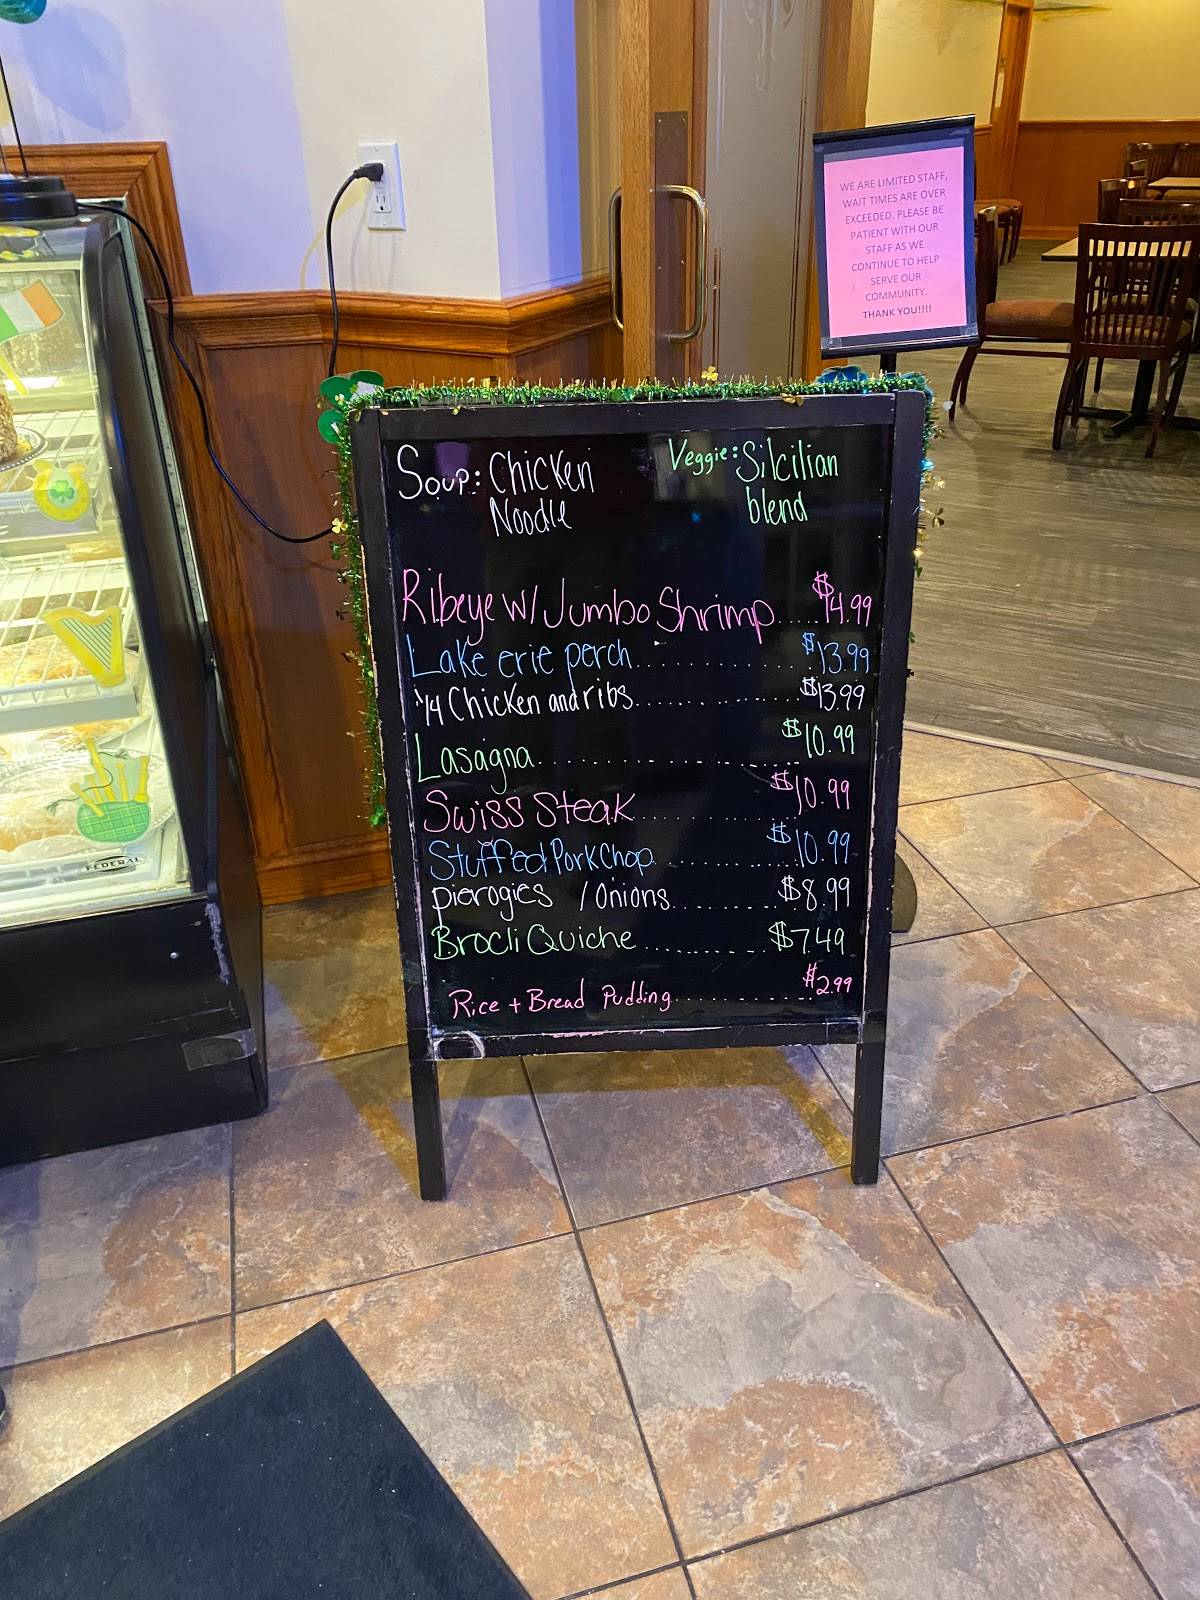 WE ARE LIMITED STAFF,
WAIT TIMES ARE OVER
EXCEEDED. PLEASE BE
PATIENT WITH OUR
STAFF AS WE
CONTINUE TO HELP
SERVE OUR
COMMUNITY.
THANK YOU!!!!
Soup: Chicken
Noodle
Veggie: Silcilian
blend
Ribeye w/ Jumbo Shrimp..... $14.99
Lake erie perch............... $13.99
1/4 Chicken and ribs............... $13.99
Lasagna.................... $10.99
Swiss Steak.............. $10.99
Stuffed Pork Chop............ $10.99
pierogies / Onions........... $8.99
Brocli Quiche............ $7.49
Rice + Bread Pudding............ $2.99
FEDERAL